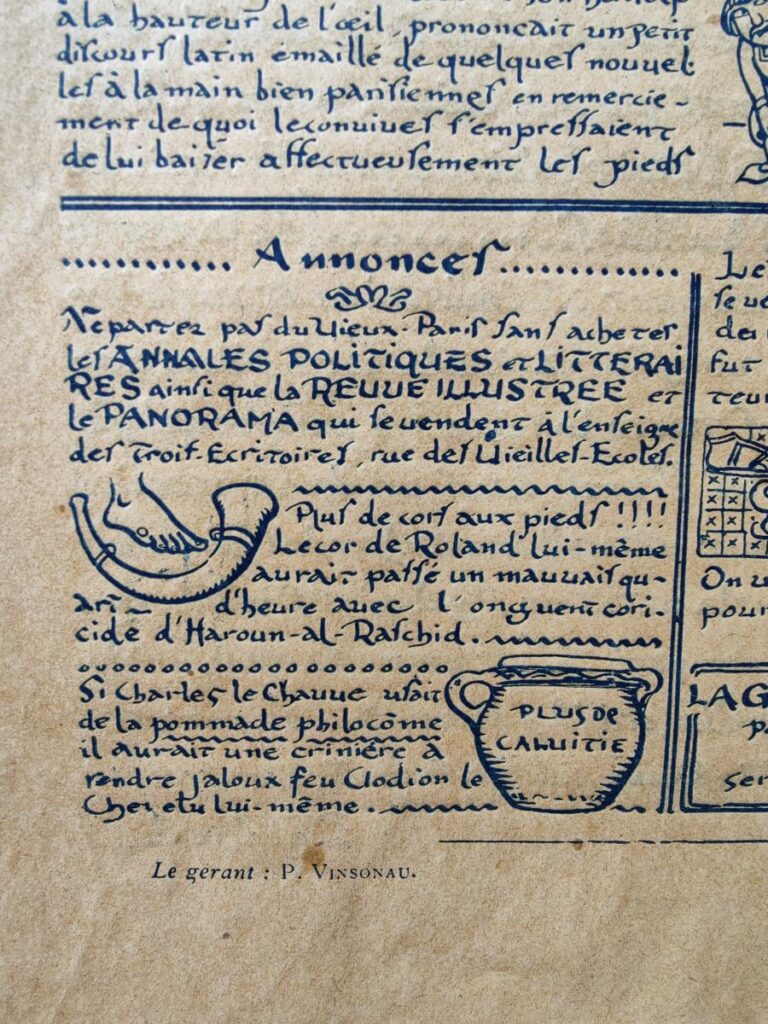 à la hauteur de l'œil, prononcait un petit
discours latin émaillé de quelques nouvel-
les à la main bien parisiennes en remercie-
ment de quoi leconuives s'empressaient
de lui baiser affectueusement les pieds
Annonces
Ne partez pas du Vieux-Paris sans acheter
les ANNALES POLITIQUES et LITTERAI
RES ainsi que la REVUE ILLUSTREE et
le PANORAMA qui se vendent à l'enseigne
des Trois-Ecritoires, rue des Vieilles-Ecoles.
Plus de cors aux pieds !!!!
Le cor de Roland lui-même
aurait passé un mauvais qu-
art d'heure avec l'onguent cori-
cide d'Haroun-al-Raschid.
Si Charles le Chauve usait
de la pommade philocôme
il aurait une crinière à
rendre jaloux feu Clodion le
Chevelu lui-même.
PLUS DE
CALVITIE
Le
se ve
des
fut
teur
On u
pour
LA G
po
ser
Le gerant : P. VINSONAU.